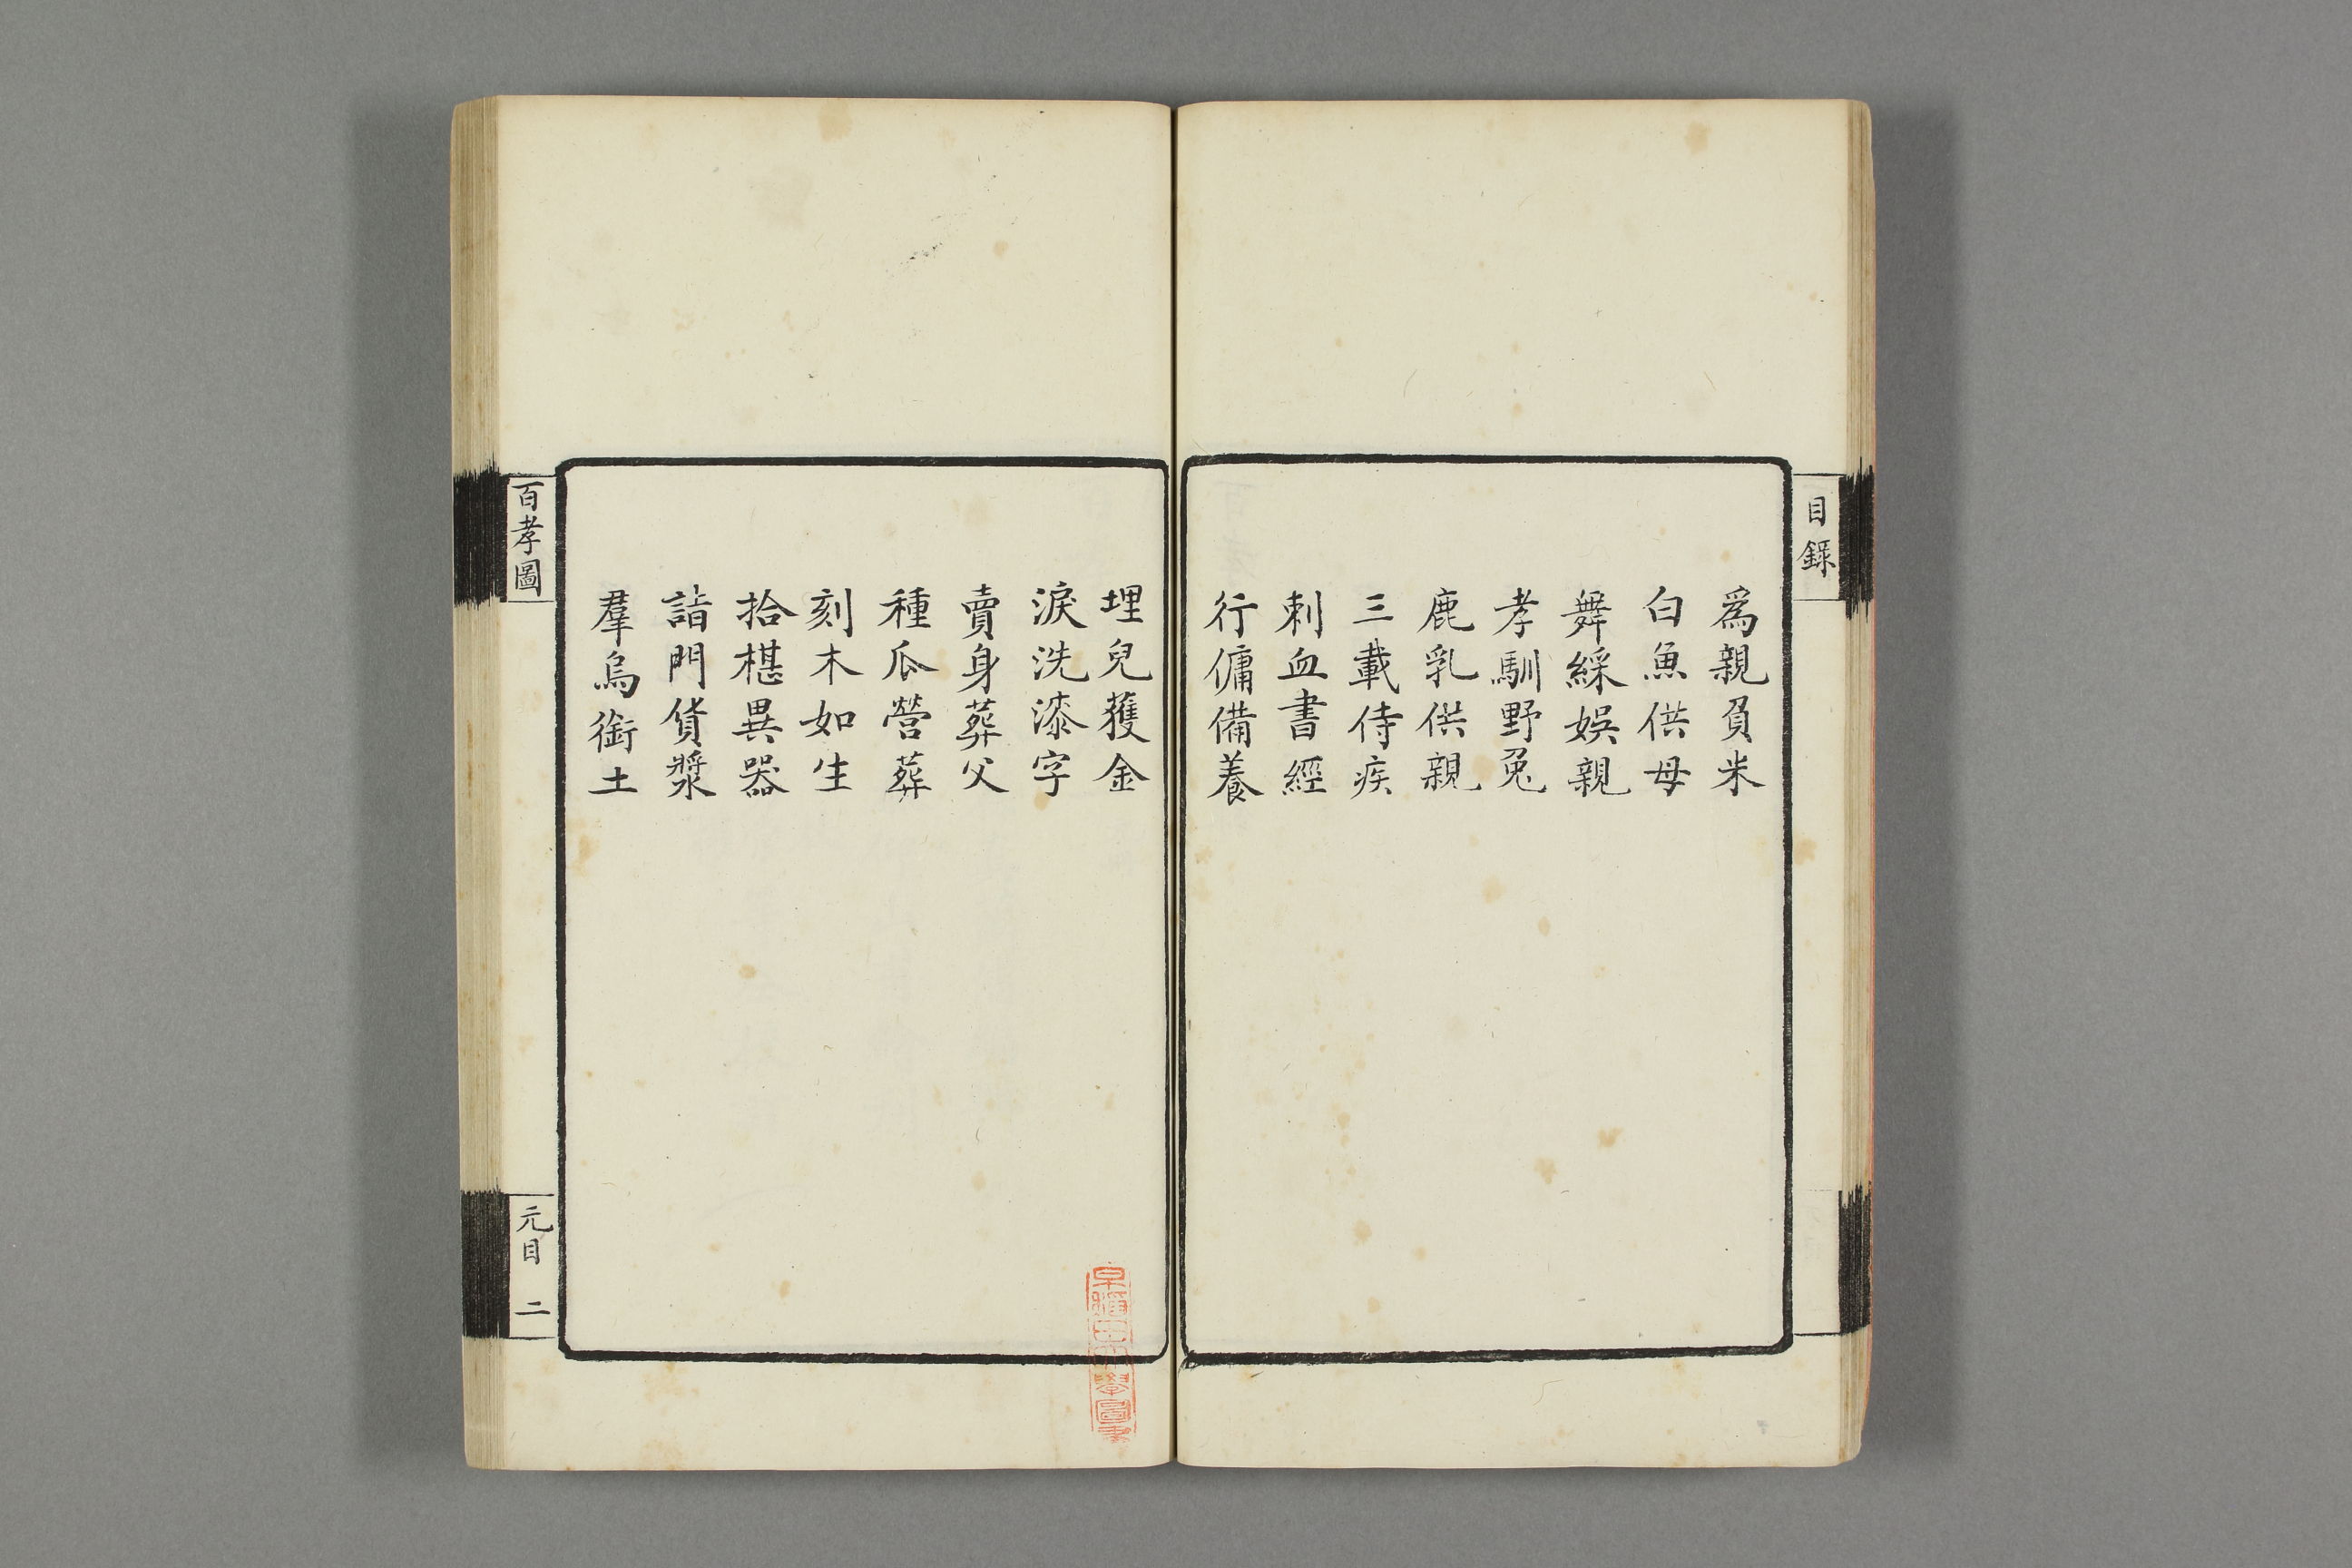 目錄
爲親負米
白魚供母
舞綵娛親
孝馴野兔
鹿乳供親
三載侍疾
刺血書經
行傭備養
埋兒獲金
淚洗漆字
賣身葬父
種瓜營葬
刻木如生
拾椹異器
詣門貸漿
羣烏銜土
百孝圖
元目 二
早稻田大學圖書